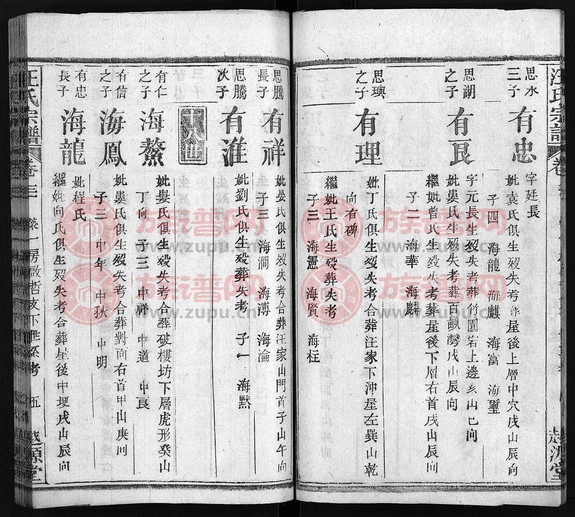 汪氏宗譜
思水三子 有忠 字廷長
妣袁氏俱生歿失考葬屋後上層中穴戌山辰向
子四 海龍 海麒 海富 海璽
思湖之子 有良 字元長生歿失考葬竹園岩上邊亥山
妣婁氏生歿失考葬百畝灣戌山辰向
繼妣曾氏生歿失考葬屋後下層右首戌山辰向
子二 海華 海麟
思璵之子 有理 俱生歿失考合葬汪家下沖屋左巽山乾
向有碑
繼妣王氏俱生歿葬失考
子三 海憲 海賢 海枉
思騰長子 有祥 妣晏氏俱生歿失考合葬汪家山門首子山午向
子三 海潤 海濤 海淪
思騰次子 有淮 妣劉氏俱生歿葬失考 子一 海默
十八世
有仁之子 海鰲 妣婁氏俱生歿失考合葬破樓坊下層虎形癸山
丁向 子三 中 中道 中良
有信之子 海鳳 妣 氏俱生歿失考合葬對面右首甲山庚向
子三 中年 中秋 中明
有忠長子 海龍 妣程氏
繼妣向氏俱生歿失考合葬屋後中堆戌山辰向
汪氏宗譜 卷三 五 越源堂
族譜网
www.zupu.cn